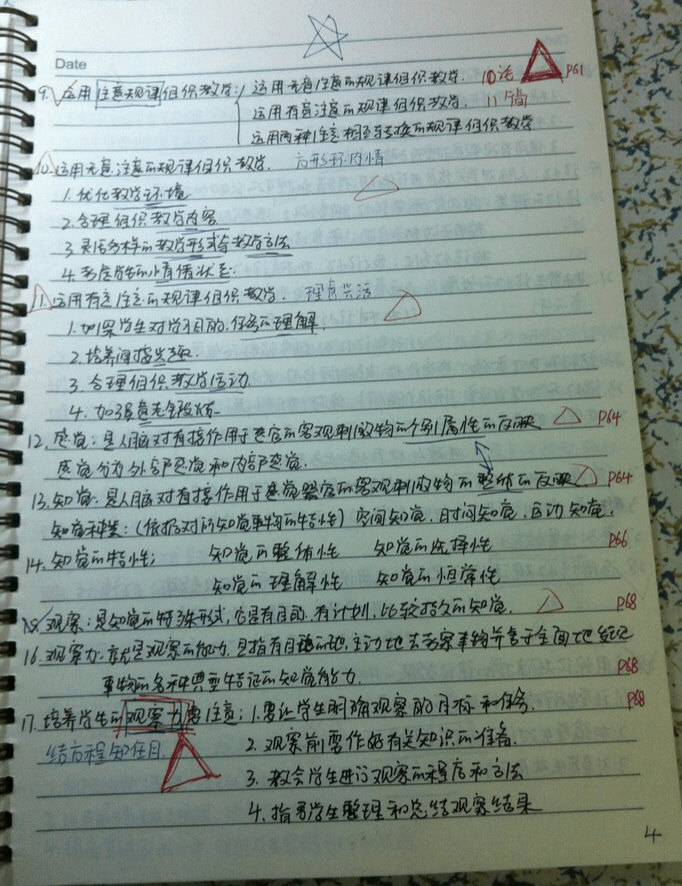 Date
9. 运用注意规律组织教学: 运用无意注意的规律组织教学. 10 论 P61
运用有意注意的规律组织教学. 11 简
运用两种注意相互转换的规律组织教学
10. 运用无意注意的规律组织教学. 方形环内情
1. 优化教学环境.
2. 合理组织教学内容
3. 灵活多样的教学形式与教学方法
4. 考虑学生的内在情绪状态.
11. 运用有意注意的规律组织教学. 理意兴活
1. 加深学生对学习目的、任务的理解.
2. 培养间接兴趣.
3. 合理组织教学活动
4. 加强意志锻炼
12. 感觉: 是人脑对直接作用于感官的客观刺激物的个别属性的反映 P64
感觉分为外部感觉和内部感觉.
13. 知觉: 是人脑对直接作用于感觉器官的客观刺激物的整体的反映 P64
知觉种类: (依据对的知觉事物的特性) 空间知觉, 时间知觉, 运动知觉,
14. 知觉的特性; 知觉的整体性 知觉的选择性 P66
知觉的理解性 知觉的恒常性
15. 观察: 是知觉的特殊形式, 它是有目的, 有计划, 比较持久的知觉. P68
16. 观察力: 就是观察的能力, 是指有目的地, 主动地去考察事物并善于全面地发现
事物的各种典型特征的知觉能力. P68
17. 培养学生的观察力要注意: 1. 要让学生明确观察的目标和任务. P68
结方程知任目. 2. 观察前要作好有关知识的准备.
3. 教会学生进行观察的程序和方法
4. 指导学生整理和总结观察结果
4